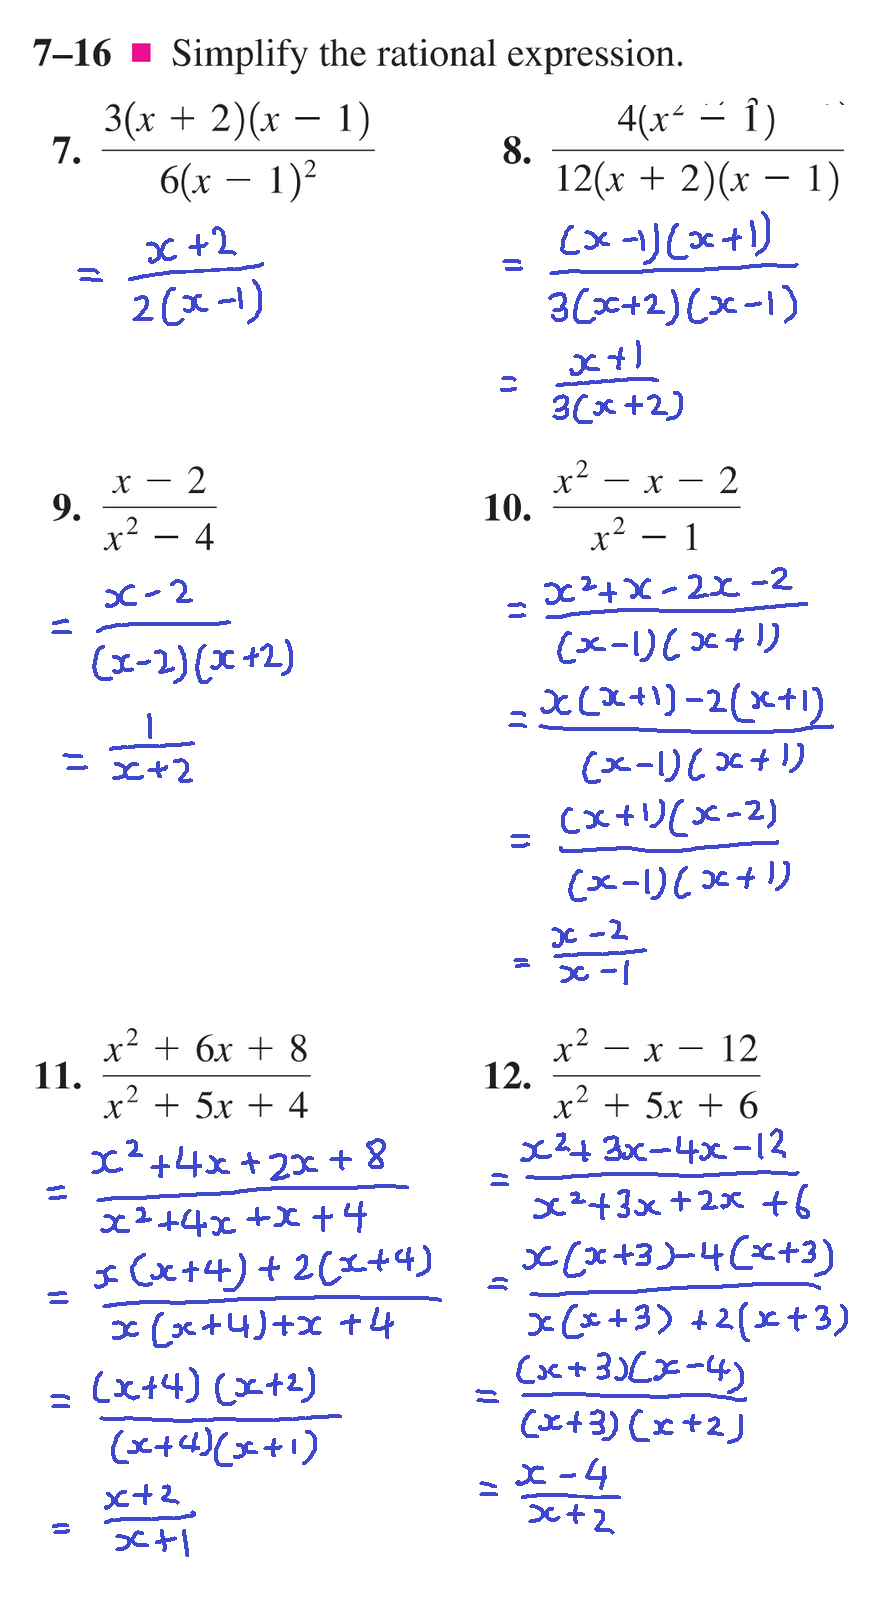 7–16 ■ Simplify the rational expression.
7. \frac{3(x + 2)(x − 1)}{6(x − 1)^2}
= \frac{x+2}{2(x-1)}
8. \frac{4(x^2 − 1)}{12(x + 2)(x − 1)}
= \frac{(x-1)(x+1)}{3(x+2)(x-1)}
= \frac{x+1}{3(x+2)}
9. \frac{x − 2}{x^2 − 4}
= \frac{x-2}{(x-2)(x+2)}
= \frac{1}{x+2}
10. \frac{x^2 − x − 2}{x^2 − 1}
= \frac{x^2+x-2x-2}{(x-1)(x+1)}
= \frac{x(x+1)-2(x+1)}{(x-1)(x+1)}
= \frac{(x+1)(x-2)}{(x-1)(x+1)}
= \frac{x-2}{x-1}
11. \frac{x^2 + 6x + 8}{x^2 + 5x + 4}
= \frac{x^2+4x+2x+8}{x^2+4x+x+4}
= \frac{x(x+4)+2(x+4)}{x(x+4)+x+4}
= \frac{(x+4)(x+2)}{(x+4)(x+1)}
= \frac{x+2}{x+1}
12. \frac{x^2 − x − 12}{x^2 + 5x + 6}
= \frac{x^2+3x-4x-12}{x^2+3x+2x+6}
= \frac{x(x+3)-4(x+3)}{x(x+3)+2(x+3)}
= \frac{(x+3)(x-4)}{(x+3)(x+2)}
= \frac{x-4}{x+2}